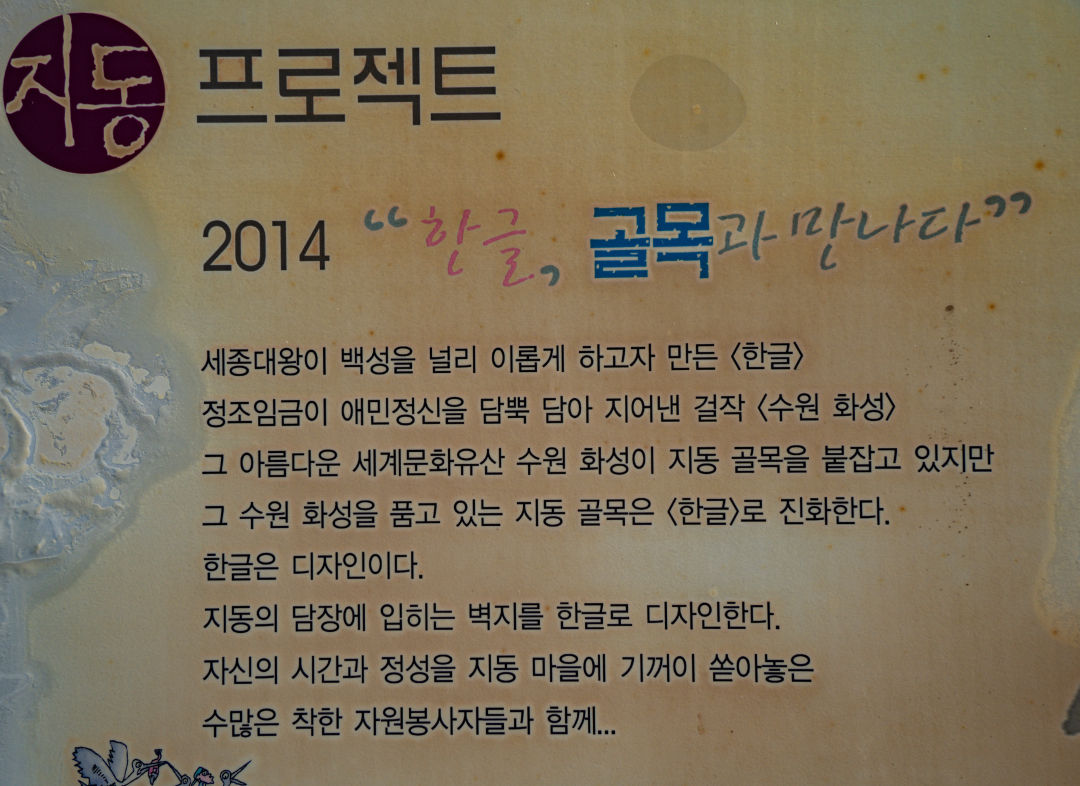 지동 프로젝트
2014 “한글, 골목과 만나다”
세종대왕이 백성을 널리 이롭게 하고자 만든 〈한글〉
정조임금이 애민정신을 담뿍 담아 지어낸 걸작 〈수원 화성〉
그 아름다운 세계문화유산 수원 화성이 지동 골목을 붙잡고 있지만
그 수원 화성을 품고 있는 지동 골목은 〈한글〉로 진화한다.
한글은 디자인이다.
지동의 담장에 입히는 벽지를 한글로 디자인한다.
자신의 시간과 정성을 지동 마을에 기꺼이 쏟아놓은
수많은 착한 자원봉사자들과 함께...